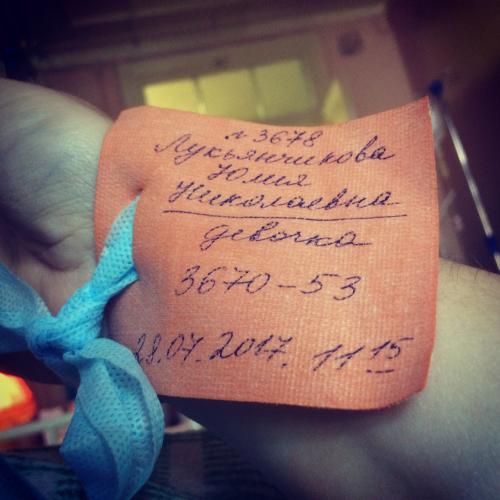 № 3678
Лукьянчикова
Юлия
Николаевна
девочка
3670-53
28.07.2017. 11 15